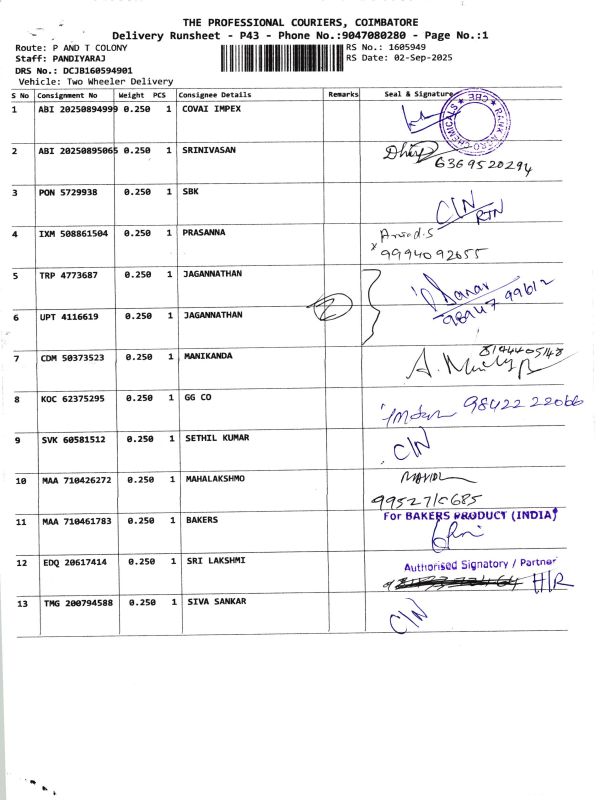 THE PROFESSIONAL COURIERS, COIMBATORE
Delivery Runsheet - P43 - Phone No.:9047080280 - Page No.:1
Route: P AND T COLONY RS No.: 1605949
Staff: PANDIYARAJ RS Date: 02-Sep-2025
DRS No.: DCJB160594901
Vehicle: Two Wheeler Delivery
S No Consignment No Weight PCS Consignee Details Remarks Seal & Signature
1 ABI 20250894999 0.250 1 COVAI IMPEX
2 ABI 20250895065 0.250 1 SRINIVASAN
6369520294
3 PON 5729938 0.250 1 SBK C/N RTN
4 IXM 508861504 0.250 1 PRASANNA
9994092655
5 TRP 4773687 0.250 1 JAGANNATHAN
98947 99612
6 UPT 4116619 0.250 1 JAGANNATHAN 2
7 CDM 50373523 0.250 1 MANIKANDA
8 KOC 62375295 0.250 1 GG CO 98422 22066
9 SVK 60581512 0.250 1 SETHIL KUMAR C/N
10 MAA 710426272 0.250 1 MAHALAKSHMO
11 MAA 710461783 0.250 1 BAKERS For BAKERS PRODUCT (INDIA)
12 EDQ 20617414 0.250 1 SRI LAKSHMI Authorised Signatory / Partner
H/R
13 TMG 200794588 0.250 1 SIVA SANKAR C/N